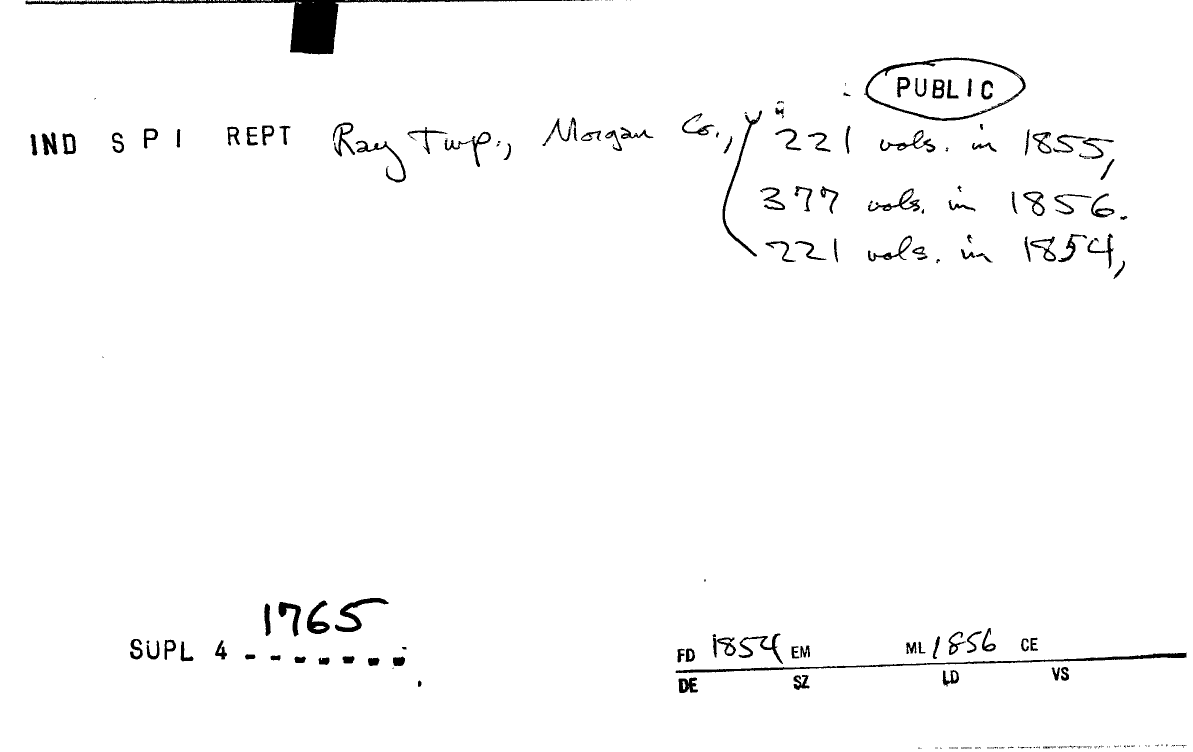 PUBLIC
IND S P I REPT Ray Twp., Morgan Co., 221 vols. in 1855,
377 vols. in 1856.
221 vols. in 1854,
1765
SUPL 4 - - - - - - -
FD 1854 EM ML 1856 CE
DE SZ LD VS